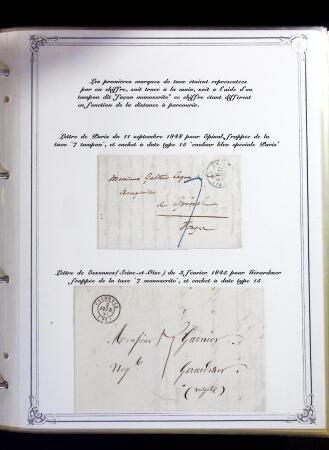 Les premières marques de taxe étaient représentées
par un chiffre, soit tracé à la main, soit à l'aide d'un
tampon dit "façon manuscrite" ce chiffre étant différent
en fonction de la distance à parcourir.
Lettre de Paris du 11 septembre 1848 pour Epinal, frappée de la
taxe "7 tampon", et cachet à date type 15 "couleur bleu spéciale Paris"
Monsieur
7
à Epinal
Vosges
Lettre de Essonnes (Seine-et-Oise) du 3 février 1848 pour Gérardmer
frappée de la taxe "7 manuscrite", et cachet à date type 15
Monsieur Garnier
7
Neg.t
Gerardmer
(vosges)